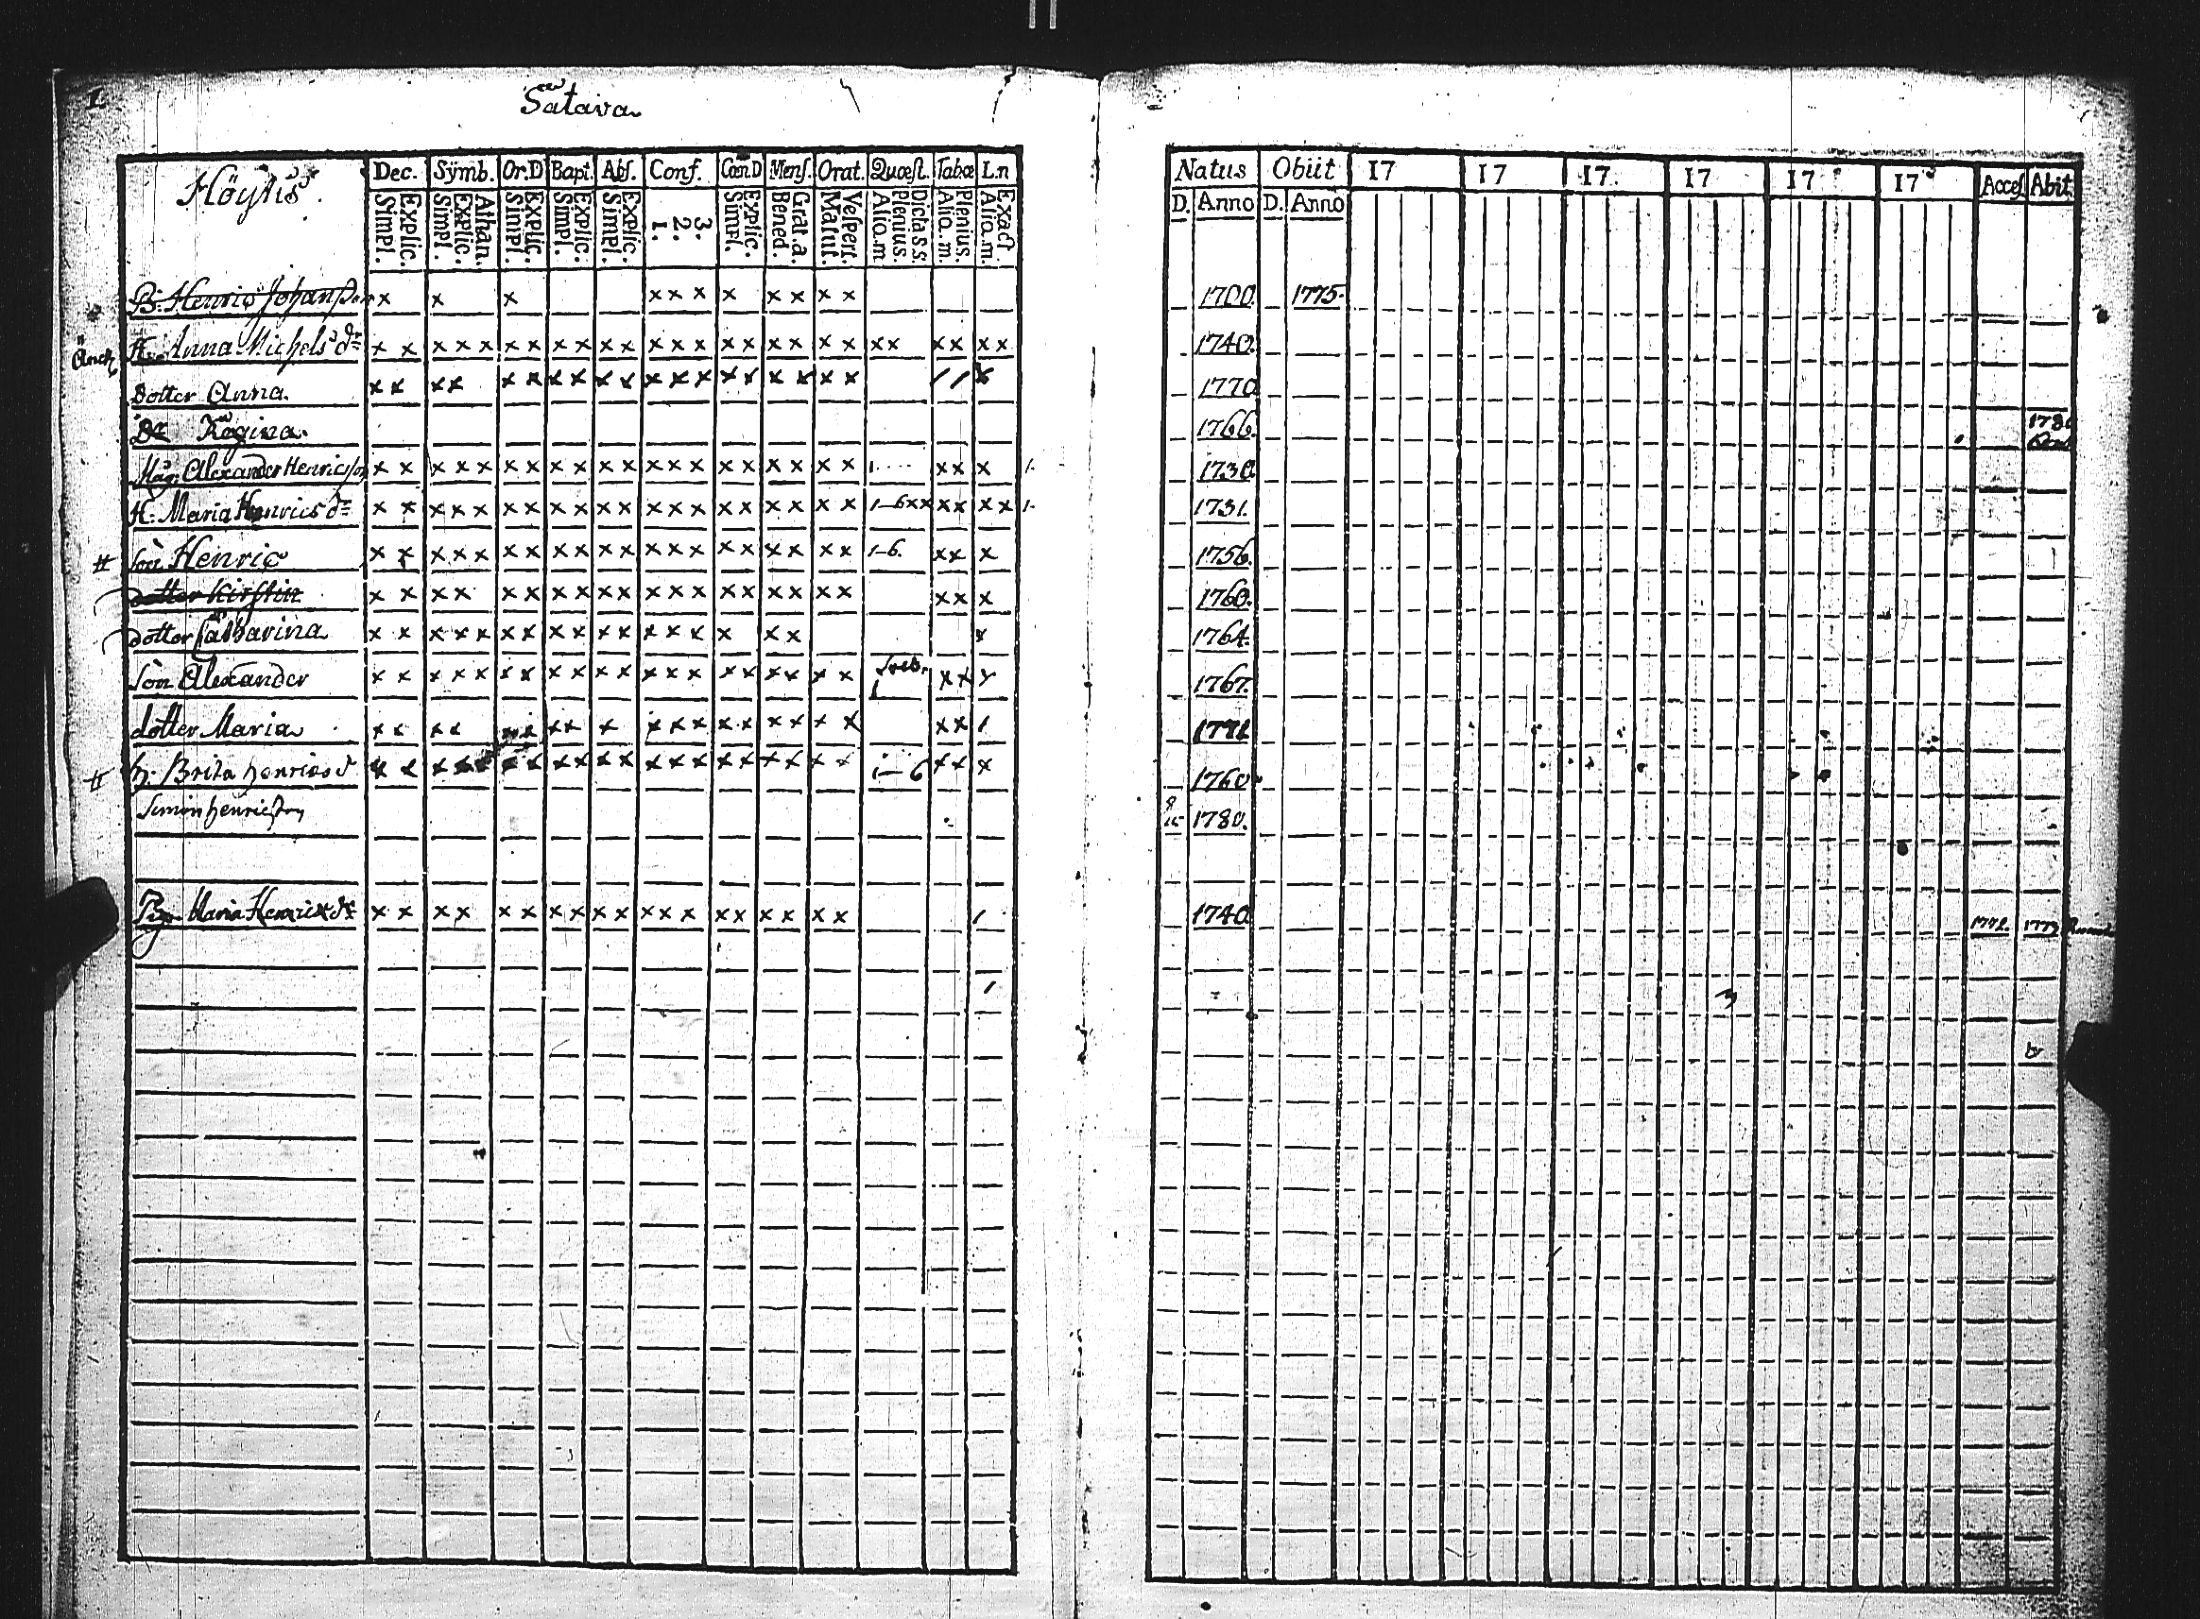 1
Sätava
Höystis
Dec. Sÿmb. Or.D Bapt. Abſ. Conf. Cœn D Menſ. Orat. Quæſt. Tabæ L.n
Simpl. Explic. Simpl. Explic. Athan. Simpl. Explic. Simpl. Explic. Simpl. Explic. 1. 2. 3. Simpl. Explic. Bened. Grat. a. Matut. Veſpert. Aliq.m Plenius. Dicta S.S. Aliq.m Plenius. Aliq.m Exact
Natus Obiit 17 17 17 17 17 17 Acceſ. Abit
D. Anno D. Anno
B: Henric Johanſson x x x x x x x x x x x 1700. 1775.
H: Anna Michels dr x x x x x x x x x x x x x x x x x x x x x x x x x x 1740.
Dotter Anna x x x x x x x x x x x x x x x x x x x 1 1 x 1770
Dr Regina 1766.
Måg. Alexander Henricsson x x x x x x x x x x x x x x x x x x x x 1 x x x 1. 1730
H: Maria Henrics dr x x x x x x x x x x x x x x x x x x x x 1–6 x x x x x x 1. 1731.
# Son Henric x x x x x x x x x x x x x x x x x x x x 1–6. x x x 1756.
dotter Kirstin x x x x x x x x x x x x x x x x x x x x x x 1760.
dotter Catharina x x x x x x x x x x x x x x x x x x 1764.
Son Alexander x x x x x x x x x x x x x x x x x x x x 1 x x x 1767.
dotter Maria x x x x x x x x x x x x x x x x x x x x 1 1771
# h: Brita henrics d x x x x x x x x x x x x x x x x x x x x 1–6 x x x 1760
Simon henricsson 1780.
Maria Henrics dr x x x x x x x x x x x x x x x x x x x 1 1740 1772. 1773